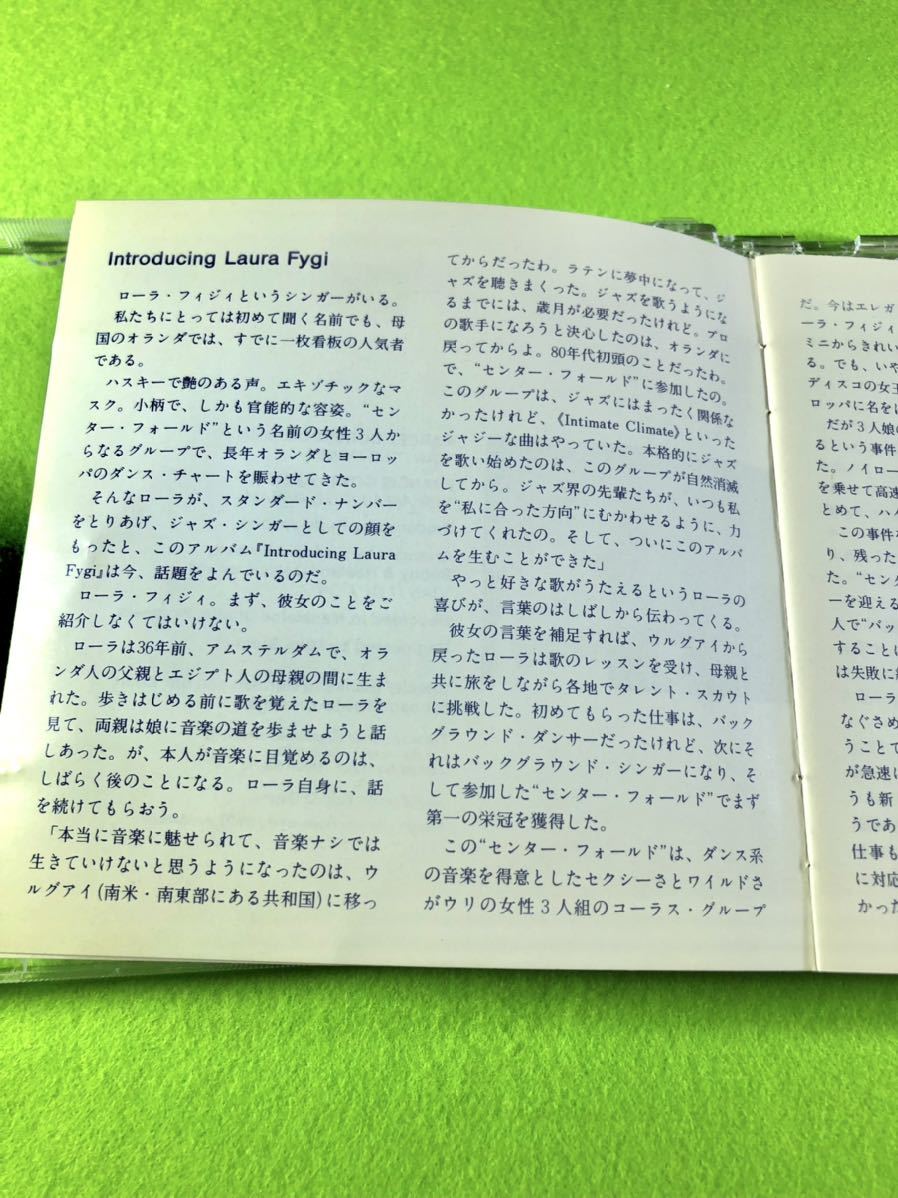 Introducing Laura Fygi
ローラ・フィジィというシンガーがいる。
私たちにとっては初めて聞く名前でも、母
国のオランダでは、すでに一枚看板の人気者
である。
ハスキーで艶のある声。エキゾチックなマ
スク。小柄で、しかも官能的な容姿。“セン
ター・フォールド”という名前の女性3人か
らなるグループで、長年オランダとヨーロッ
パのダンス・チャートを賑わせてきた。
そんなローラが、スタンダード・ナンバー
をとりあげ、ジャズ・シンガーとしての顔を
もったと、このアルバム『Introducing Laura
Fygi』は今、話題をよんでいるのだ。
ローラ・フィジィ。まず、彼女のことをご
紹介しなくてはいけない。
ローラは36年前、アムステルダムで、オラ
ンダ人の父親とエジプト人の母親の間に生ま
れた。歩きはじめる前に歌を覚えたローラを
見て、両親は娘に音楽の道を歩ませようと話
しあった。が、本人が音楽に目覚めるのは、
しばらく後のことになる。ローラ自身に、話
を続けてもらおう。
「本当に音楽に魅せられて、音楽ナシでは
生きていけないと思うようになったのは、ウ
ルグアイ(南米・南東部にある共和国)に移っ
てからだったわ。ラテンに夢中になって、ジ
ャズを聴きまくった。ジャズを歌うようにな
るまでには、歳月が必要だったけれど。プロ
の歌手になろうと決心したのは、オランダに
戻ってからよ。80年代初頭のことだったわ。
で、“センター・フォールド”に参加したの。
このグループは、ジャズにはまったく関係な
かったけれど、《Intimate Climate》といった
ジャジーな曲はやっていた。本格的にジャズ
を歌い始めたのは、このグループが自然消滅
してから。ジャズ界の先輩たちが、いつも私
を“私に合った方向”にむかわせるように、力
づけてくれたの。そして、ついにこのアルバ
ムを生むことができた」
やっと好きな歌がうたえるというローラの
喜びが、言葉のはしばしから伝わってくる。
彼女の言葉を補足すれば、ウルグアイから
戻ったローラは歌のレッスンを受け、母親と
共に旅をしながら各地でタレント・スカウト
に挑戦した。初めてもらった仕事は、バック
グラウンド・ダンサーだったけれど、次にそ
れはバックグラウンド・シンガーになり、そ
して参加した“センター・フォールド”でまず
第一の栄冠を獲得した。
この“センター・フォールド”は、ダンス系
の音楽を得意としたセクシーさとワイルドさ
がウリの女性3人組のコーラス・グループ
だ。今はエレガ
ーラ・フィジィ
ミニからきれい
る。でも、いや
ディスコの女王
ロッパに名を
だが3人娘の
るという事件
た。ノイロー
を乗せて高速
とめて、ハイ
この事件
り、残った
た。“センタ
ーを迎える
人で“バッ
することに
は失敗に
ローラ
なぐさめ
うことで
が急速に
うも新
うであ
仕事も
に対応
かった